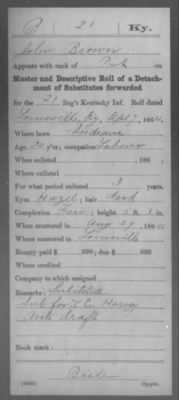 B 21 Ky.
John Brown
Appears with rank of Pvt. on
Muster and Descriptive Roll of a Detach-
ment of Substitutes forwarded
for the 21 Reg't Kentucky Inf. Roll dated
Louisville, Ky. Sept 7, 1864.
Where born Indiana
Age y'rs; occupation Laborer
When enlisted , 186 .
Where enlisted
For what period enlisted 3 years.
Eyes Hazel; hair dark
Complexion Fair; height 5 ft. 8 in.
When mustered in Aug 29, 186
Where mustered in Louisville
Bounty paid $ 100; due $ 100
Where credited
Company to which assigned
Remarks: Substitute
Sub for E. Harris
draft
Book mark:
Copyist.